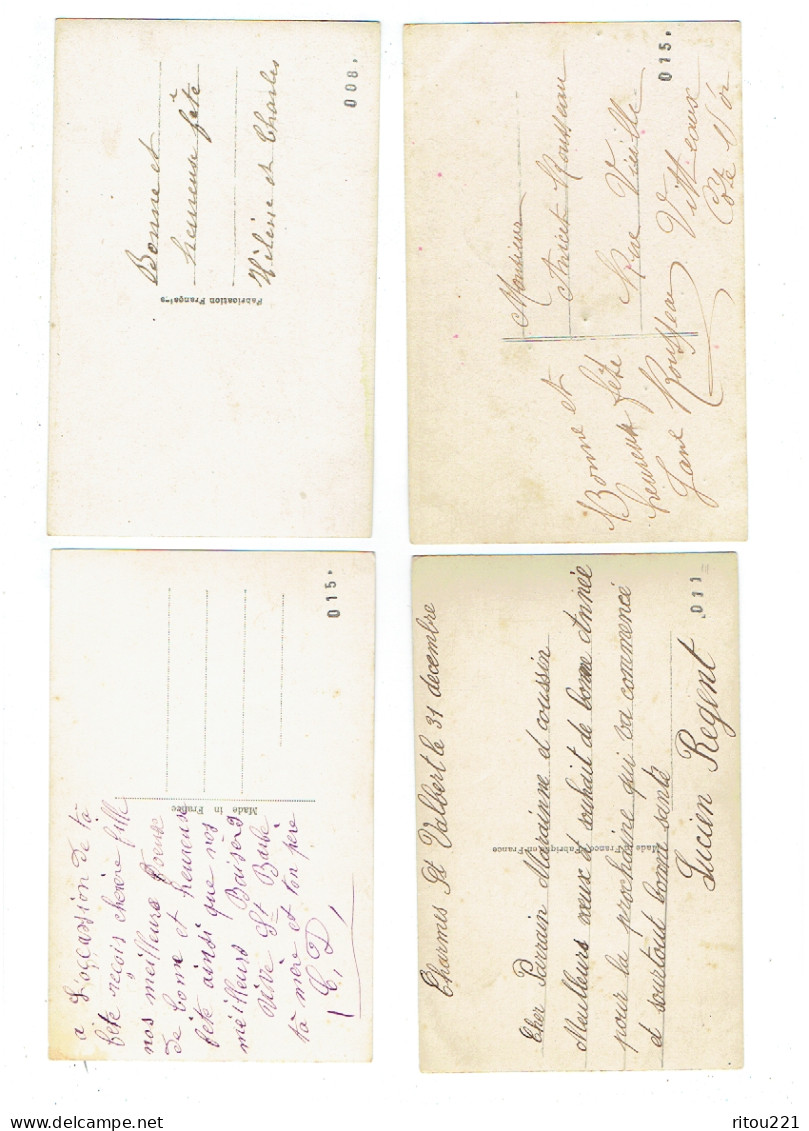 008.
Bonne et
heureuse fête
Hélène et Charles
Fabrication Française
015.
Monsieur
Anicet Rousseau
Rue Vieille
Vitteaux
Côte d'Or
Bonne et
heureuse fête
Jane Rousseau
015.
Made in France
a L'occassion de ta
fête reçois cherère fille
nos meilleurs voeux
de bonne et heureuse
fête ainsi que nos
meilleurs Baisers
Vive St Barbe
ta mère et ton père
C, D,
011
Charmes St Valbert le 31 decembre
Cher Parrain Marainne et coussin
Meulleurs voeux et souhait de bonne Année
pour la prochaine qui va commencé
et surtout bonne santé
Lucien Regent
Made France-Fabriqué en France
www.delcampe.net
ritou221